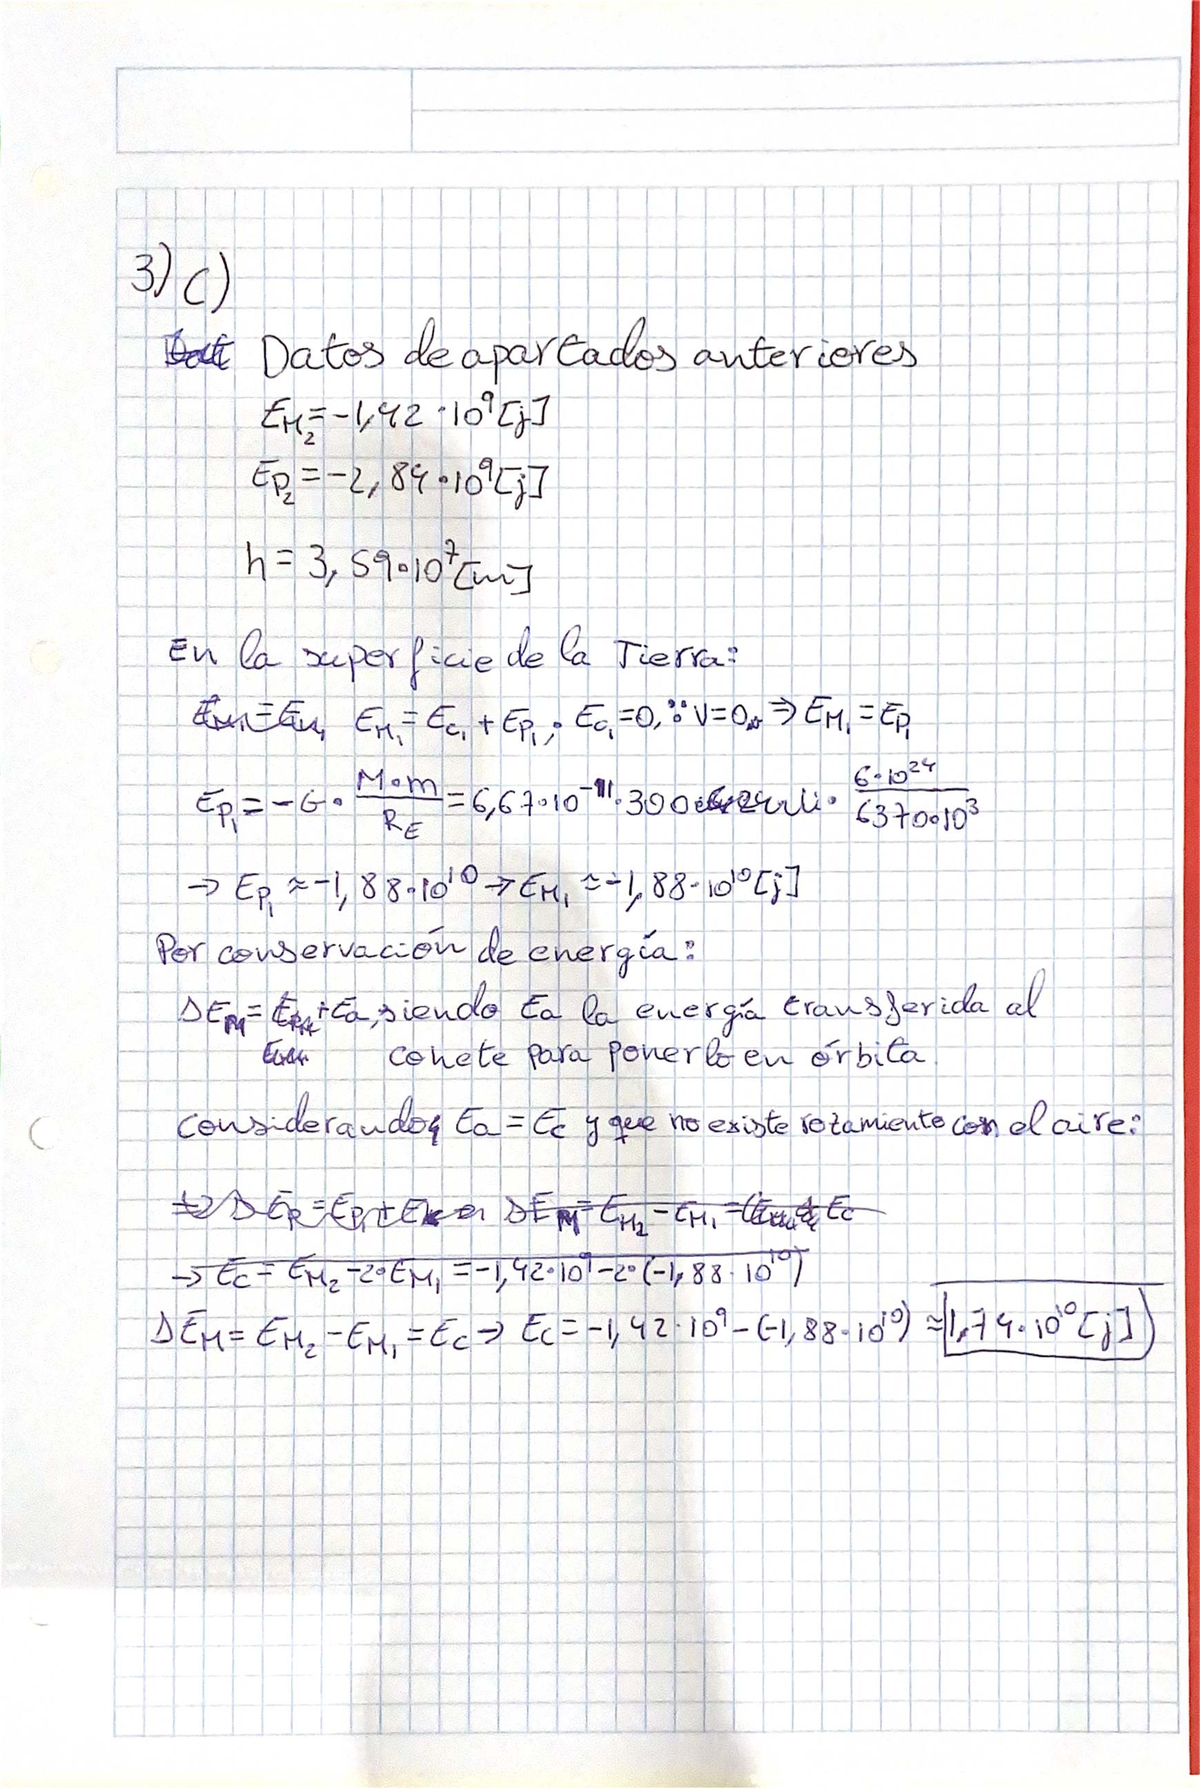 3) C)
Datos de apartados anteriores
E_{M_2} = -1,42 · 10^9 [j]
E_{P_2} = -2,84 · 10^9 [j]
h = 3,59 · 10^7 [m]
En la superficie de la Tierra:
E_{M_1} = E_{C_1} + E_{P_1}; E_{C_1} = 0, ∵ V = 0, ⇒ E_{M_1} = E_{P_1}
E_{P_1} = -G · \frac{M·m}{R_E} = 6,67·10^{-11} · 300 · \frac{6·10^{24}}{6370·10^3}
→ E_{P_1} ≈ -1,88·10^{10} → E_{M_1} ≈ -1,88·10^{10} [j]
Por conservación de energía:
ΔE_M = + Ea, siendo Ea la energía transferida al
cohete para ponerlo en órbita.
considerando q Ea = Ec y que no existe rozamiento con el aire:
→ Ec = E_{M_2} - 2·E_{M_1} = -1,42·10^9 - 2·(-1,88·10^{10})
ΔE_M = E_{M_2} - E_{M_1} = E_C → E_C = -1,42·10^9 - (-1,88·10^{10}) ≈ 1,74·10^{10} [j]